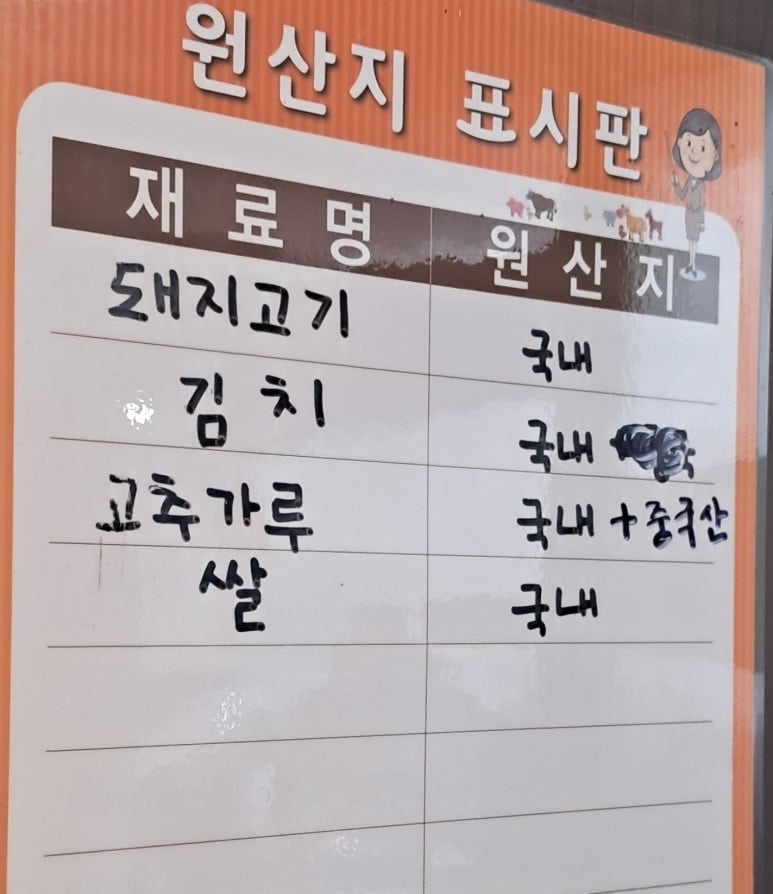 원산지 표시판
재료명 원산지
돼지고기 국내
김치 국내
고추가루 국내+중국산
쌀 국내